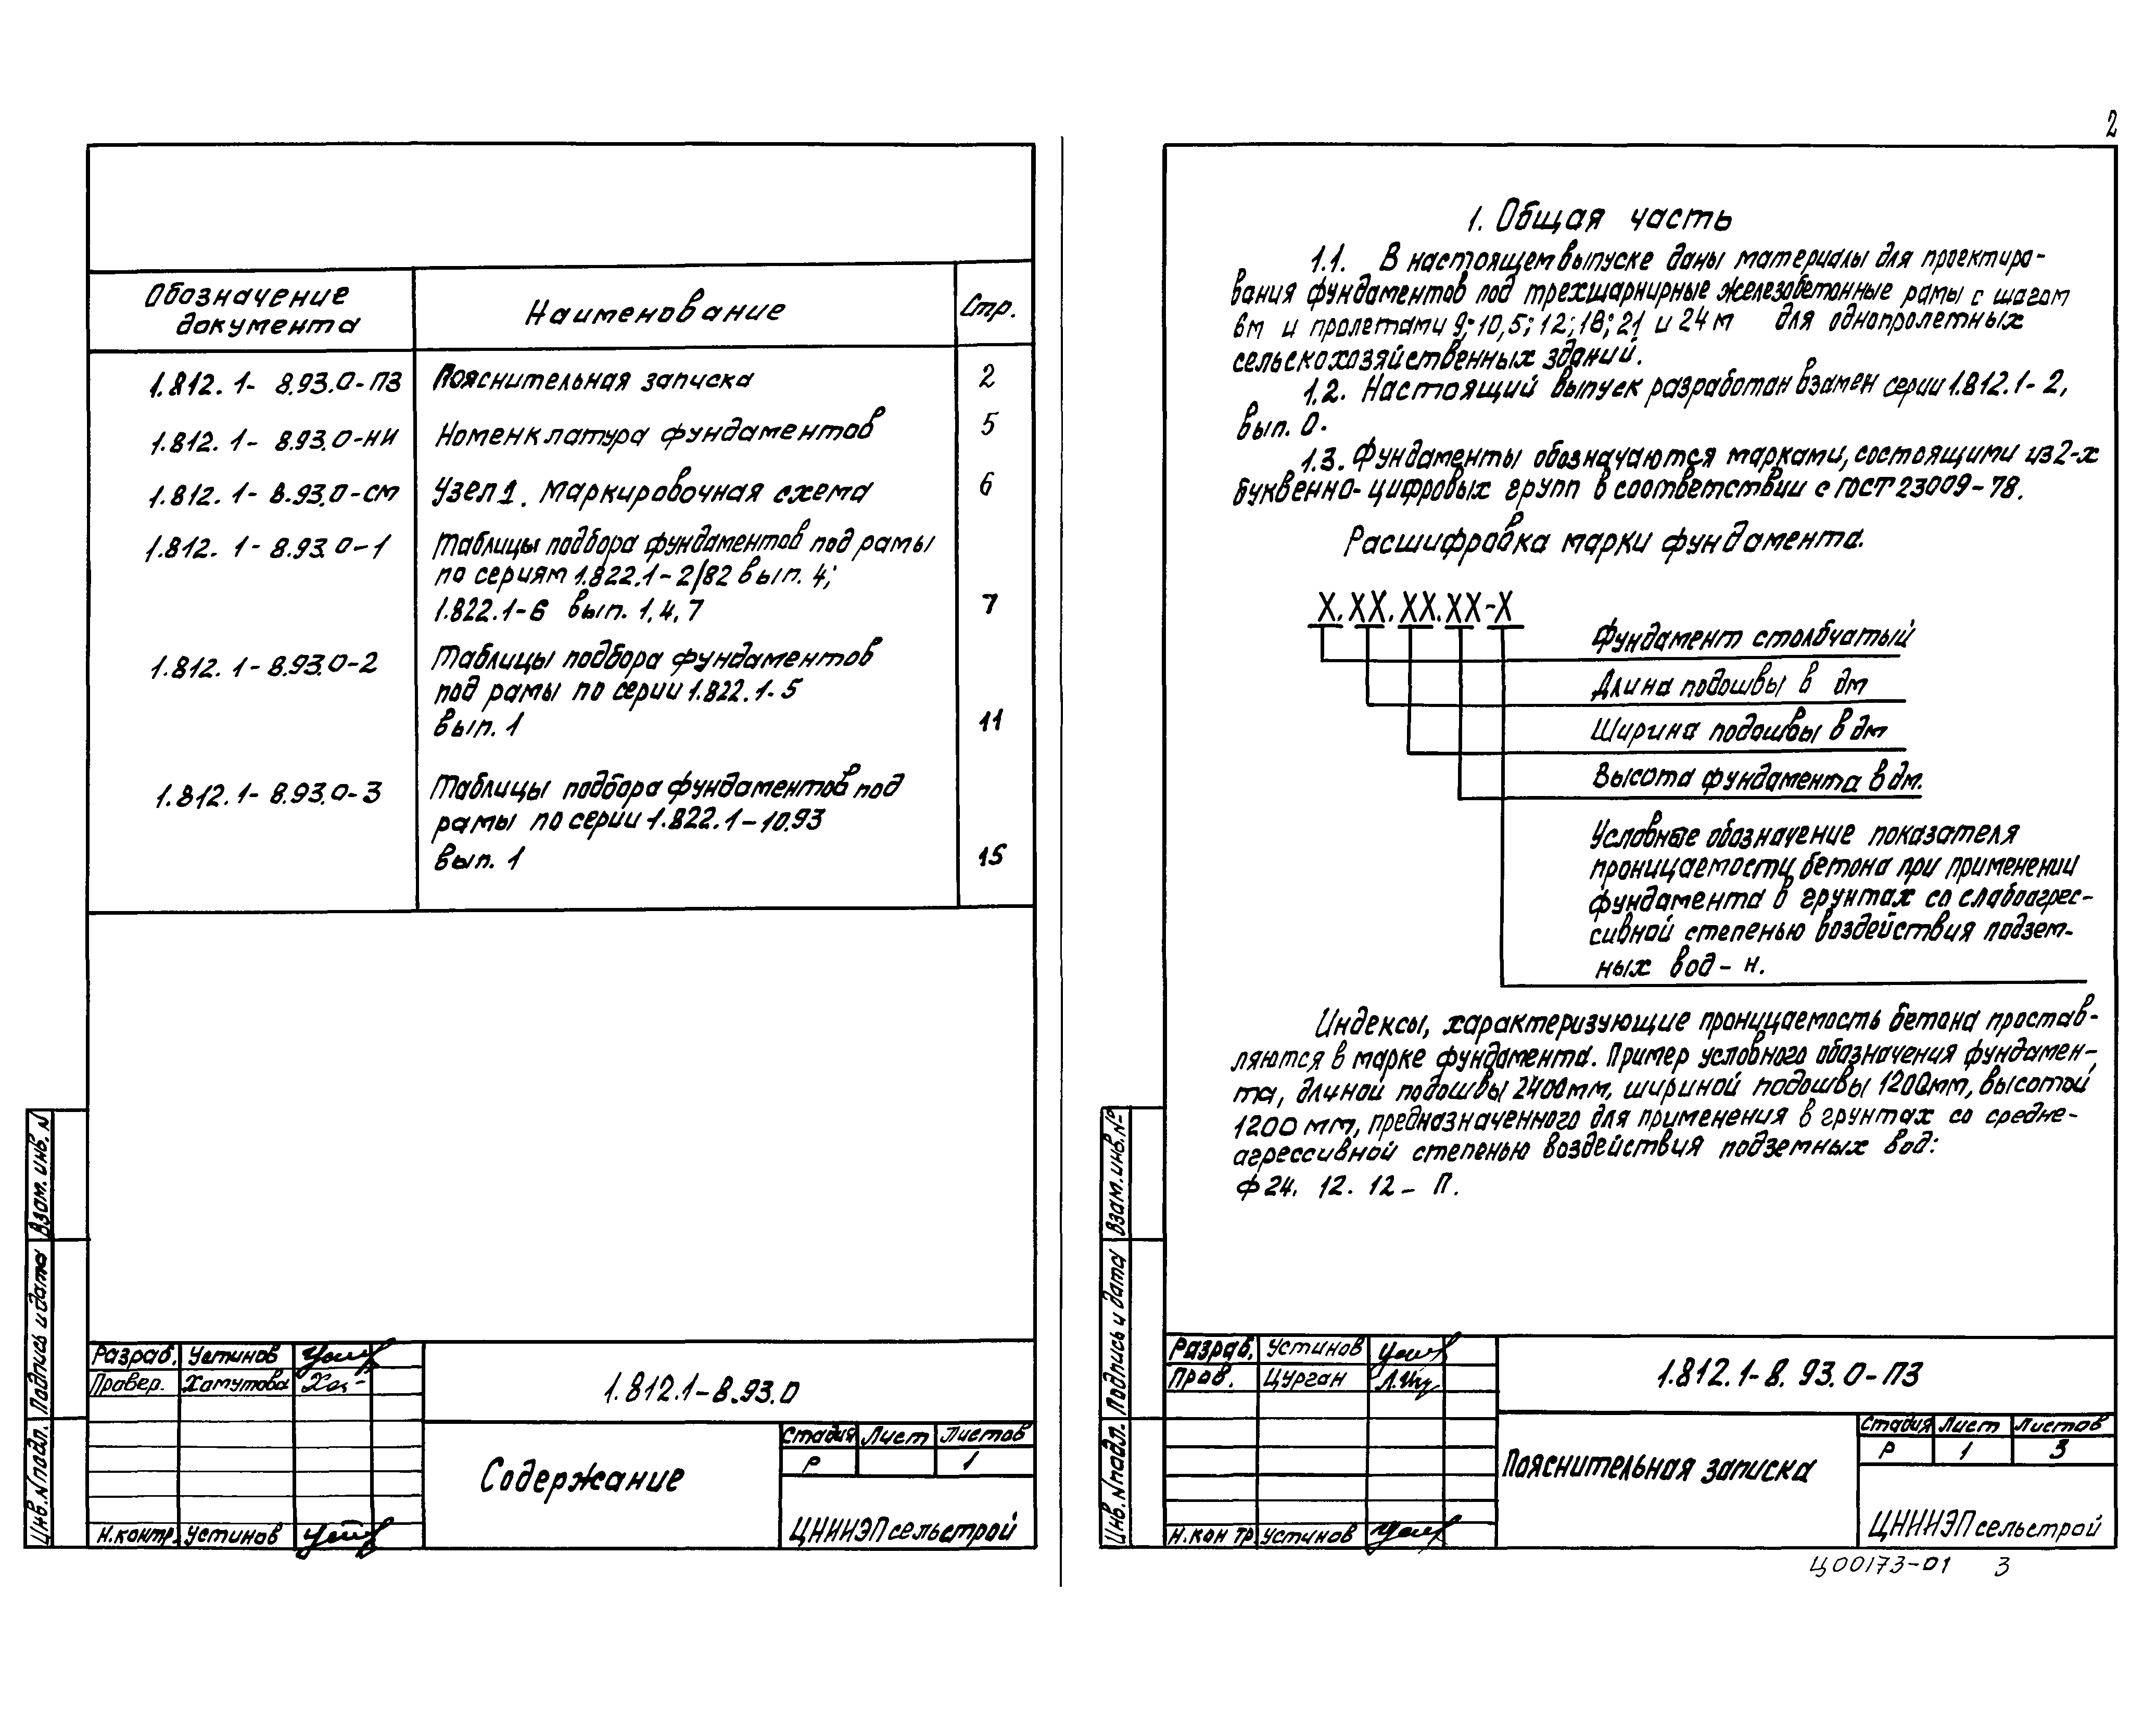 Обозначение документа
Наименование
Стр.
1.812.1-8.93.0-ПЗ
Пояснительная записка
2
1.812.1-8.93.0-НИ
Номенклатура фундаментов
5
1.812.1-8.93.0-СМ
Узел 1. Маркировочная схема
6
1.812.1-8.93.0-1
Таблицы подбора фундаментов под рамы
по сериям 1.822.1-2/82 вып. 4;
1.822.1-6 вып. 1,4,7
7
1.812.1-8.93.0-2
Таблицы подбора фундаментов
под рамы по серии 1.822.1-5
вып. 1
11
1.812.1-8.93.0-3
Таблицы подбора фундаментов под
рамы по серии 1.822.1-10.93
вып. 1
15
Взам. инв. N
Подпись и дата
Инв. N подл.
Разраб. Устинов
Провер. Хамутова
Н.контр. Устинов
1.812.1-8.93.0
Содержание
Стадия Лист Листов
Р 1
ЦНИИЭПсельстрой
2
1. Общая часть
1.1. В настоящем выпуске даны материалы для проектиро-
вания фундаментов под трехшарнирные железобетонные рамы с шагом
6м и пролетами 9; 10,5; 12; 18; 21 и 24м для однопролетных
сельскохозяйственных зданий.
1.2. Настоящий выпуск разработан взамен серии 1.812.1-2,
вып. 0.
1.3. Фундаменты обозначаются марками, состоящими из 2-х
буквенно-цифровых групп в соответствии с ГОСТ 23009-78.
Расшифровка марки фундамента.
Х.ХХ.ХХ.ХХ-Х
Фундамент столбчатый
Длина подошвы в дм
Ширина подошвы в дм
Высота фундамента в дм.
Условное обозначение показателя
проницаемости бетона при применении
фундамента в грунтах со слабоагрес-
сивной степенью воздействия подзем-
ных вод - н.
Индексы, характеризующие проницаемость бетона простав-
ляются в марке фундамента. Пример условного обозначения фундамен-
та, длиной подошвы 2400мм, шириной подошвы 1200мм, высотой
1200 мм, предназначенного для применения в грунтах со средне-
агрессивной степенью воздействия подземных вод:
Ф 24. 12. 12 - П.
Взам. инв. №
Подпись и дата
Инв. N подл.
Разраб. Устинов
Пров. Цурган
Н.контр Устинов
1.812.1-8.93.0-ПЗ
Пояснительная записка
Стадия Лист Листов
Р 1 3
ЦНИИЭПсельстрой
Ц00173-01 3